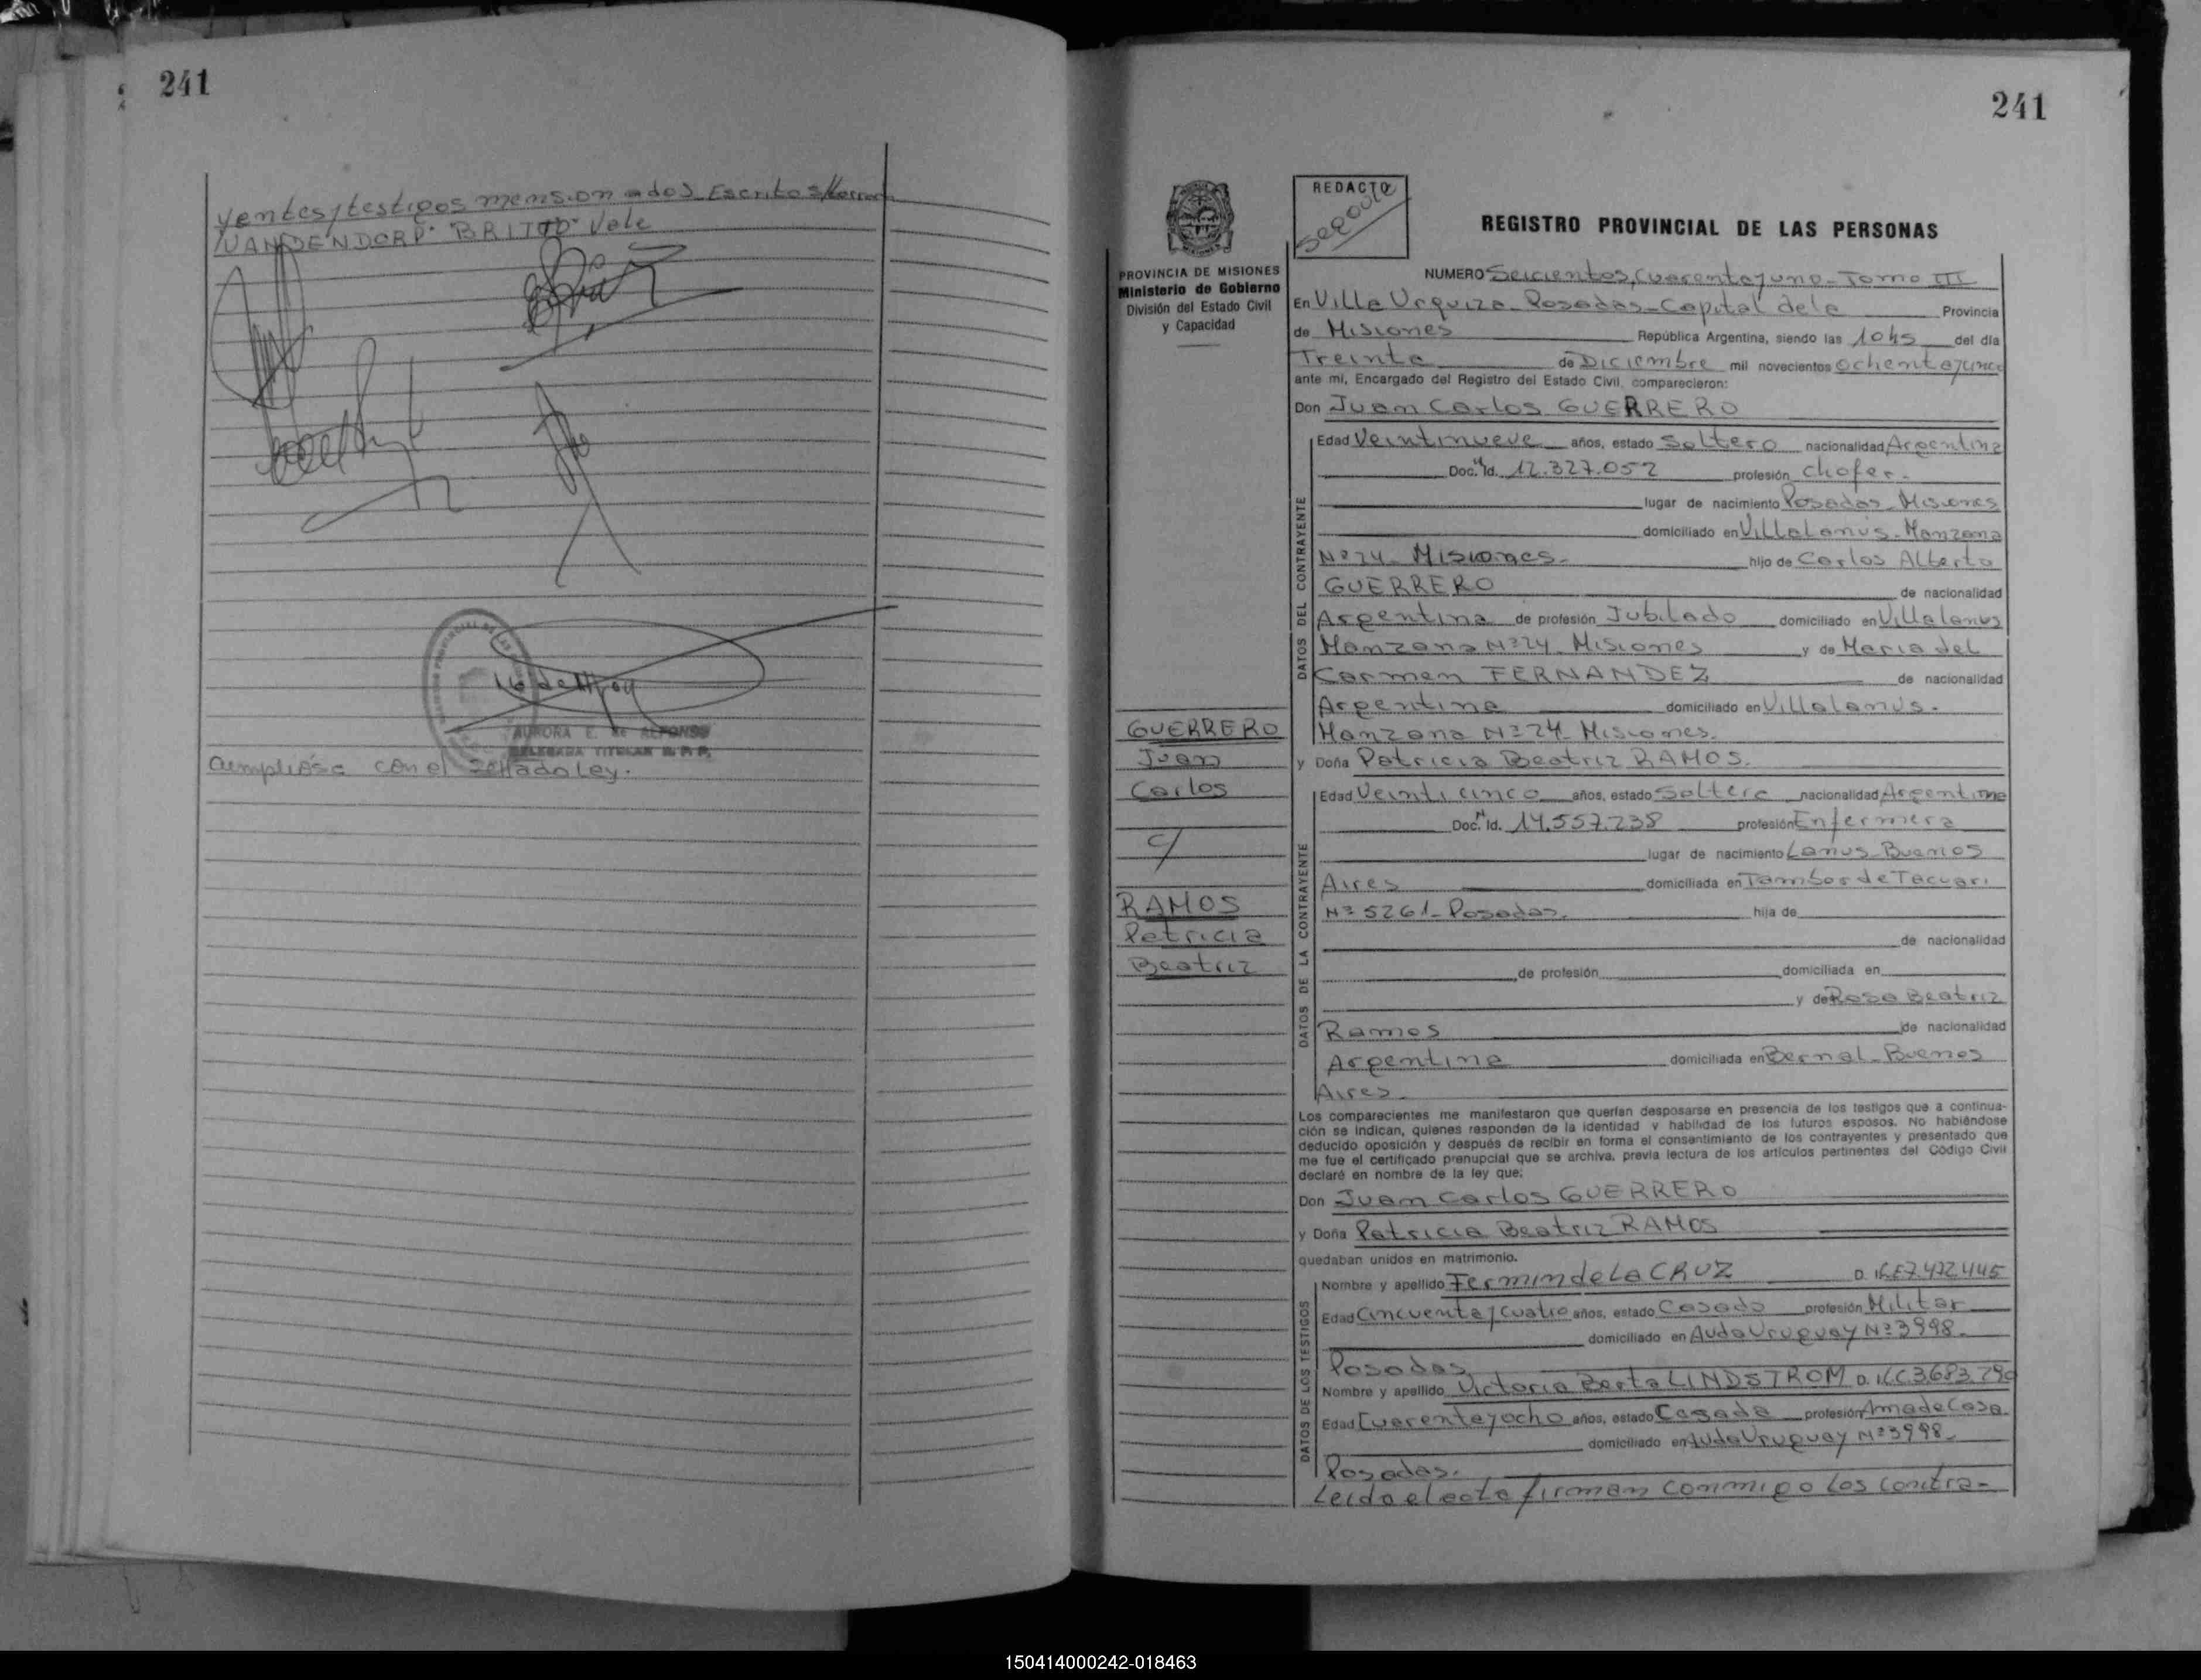 241
yentes y testigos mensionados Escritos s/borrado
"VANDENDORP" "BRITTO" Vale
AURORA E. de ALFONSO
DELEGADA TITULAR R. P. P.
Cumplióse con el Sellado Ley.
241
PROVINCIA DE MISIONES
Ministerio de Gobierno
División del Estado Civil
y Capacidad
REDACTO
REGISTRO PROVINCIAL DE LAS PERSONAS
NUMERO Seicientos, Cuarenta y uno - Tomo III
En Villa Urquiza - Posadas - Capital de la Provincia
de Misiones República Argentina, siendo las 1045 del día
Treinta de Diciembre mil novecientos ochenta y cinco
ante mí, Encargado del Registro del Estado Civil, comparecieron:
Don Juan Carlos GUERRERO
DATOS DEL CONTRAYENTE
Edad Veintinueve años, estado Soltero nacionalidad Argentina
Doc. Id. 12.327.052 profesión Chofer.
lugar de nacimiento Posadas - Misiones
domiciliado en Villa Lanús - Manzana
Nº 24 - Misiones - hijo de Carlos Alberto
GUERRERO de nacionalidad
Argentina de profesión Jubilado domiciliado en Villa Lanus
Manzana Nº 24 - Misiones y de Maria del
Carmen FERNANDEZ de nacionalidad
Argentina domiciliado en Villa Lanus -
Manzana Nº 24 - Misiones.
GUERRERO
Juan
Carlos
c/
RAMOS
Patricia
Beatriz
y Doña Patricia Beatriz RAMOS.
DATOS DE LA CONTRAYENTE
Edad Veinticinco años, estado Soltera nacionalidad Argentina
Doc. Id. 14.557.238 profesión Enfermera
lugar de nacimiento Lanus - Buenos
Aires domiciliada en Tambor de Tacuari
Nº 5261 - Posadas. hija de
de nacionalidad
de profesión domiciliada en
y de Rosa Beatriz
Ramos de nacionalidad
Argentina domiciliada en Bernal - Buenos
Aires.
Los comparecientes me manifestaron que querían desposarse en presencia de los testigos que a continua-
ción se indican, quienes responden de la identidad y habilidad de los futuros esposos. No habiéndose
deducido oposición y después de recibir en forma el consentimiento de los contrayentes y presentado que
me fue el certificado prenupcial que se archiva, previa lectura de los artículos pertinentes del Código Civil
declaré en nombre de la ley que:
Don Juan Carlos GUERRERO
y Doña Patricia Beatriz RAMOS
quedaban unidos en matrimonio.
DATOS DE LOS TESTIGOS
Nombre y apellido Fermin de La CRUZ D. I. L.E 7.472.445
Edad Cincuenta y Cuatro años, estado Casado profesión Militar
domiciliado en Avda Uruguay Nº 3998 -
Posadas
Nombre y apellido Victoria Berta LINDSTROM D. I. L.C 3.683.790
Edad Cuarenta y ocho años, estado Casada profesión Ama de Casa
domiciliado en Avda Uruguay Nº 3998 -
Posadas.
Leido el acta firman conmigo los contra-
150414000242-018463